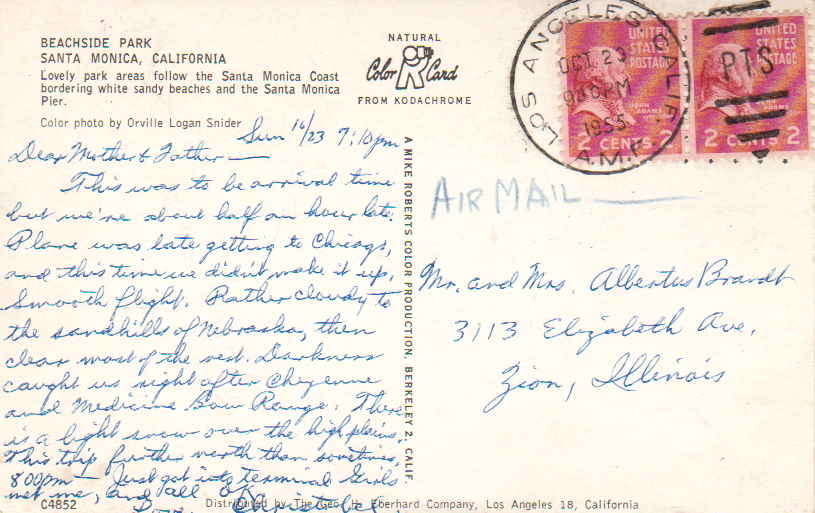 BEACHSIDE PARK
SANTA MONICA, CALIFORNIA
Lovely park areas follow the Santa Monica Coast
bordering white sandy beaches and the Santa Monica
Pier.
Color photo by Orville Logan Snider
NATURAL
Color Card
FROM KODACHROME
Sun 10/23 7:10pm
Dear Mother & Father —
This was to be arrival time
but we're about half an hour late.
Plane was late getting to Chicago,
and this time we didn't make it up.
Smooth flight. Rather cloudy to
the sandhills of Nebraska, then
clear most of the rest. Darkness
caught us right after Cheyenne
and Medicine Bow Range. There
is a light snow over the high plains.
This trip further north than sometimes.
8:00pm — Just got into terminal. Girls
met me, and all OK.
Christabel.
C4852
Distributed by The Geo. H. Eberhard Company, Los Angeles 18, California
A MIKE ROBERTS COLOR PRODUCTION, BERKELEY 2, CALIF.
LOS ANGELES CALIF.
OCT 23
PM
1955
A.M.F.
UNITED
STATES
POSTAGE
JOHN
ADAMS
2 CENTS 2
PTS
UNITED
STATES
POSTAGE
2 CENTS 2
AIR MAIL —
Mr. and Mrs. Albertus Brandt
3113 Elizabeth Ave.
Zion, Illinois